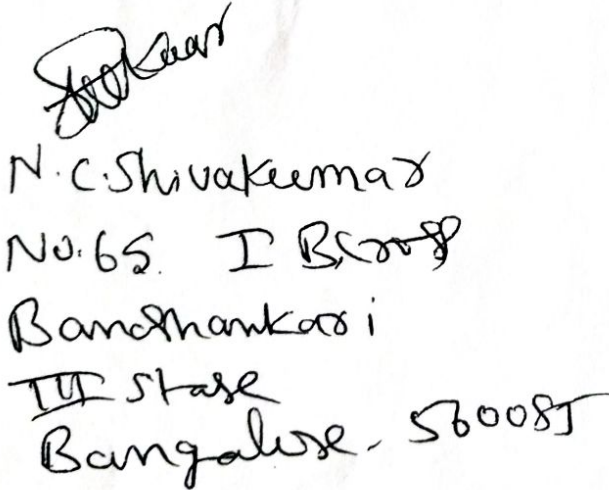 N.C. Shivakumar
No. 65. I B, Cross
Banashankari
III Stage
Bangalore - 560085